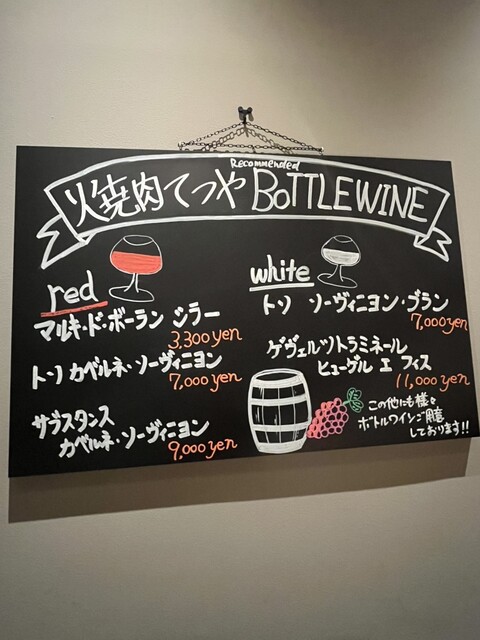 Recommended
焼肉てつや BOTTLEWINE
red
マルキ・ド・ボーラン シラー
3,300yen
トソ カベルネ・ソーヴィニヨン
7,000yen
サブスタンス
カベルネ・ソーヴィニヨン
9,000yen
white
トソ ソーヴィニヨン・ブラン
7,000yen
ゲヴェルツトラミネール
ヒューゲル エ フィス
11,000yen
この他にも様々
ボトルワインご用意
しております!!